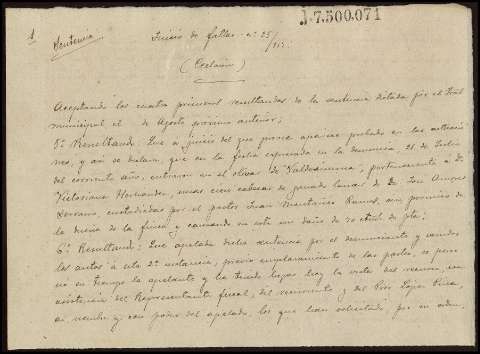 J-7.500.071
1
Sentencia
Juicio de faltas nº 25/
(Apelación)
Aceptando los cuatro primeros resultandos de la sentencia dictada por el Tral
municipal el de Agosto próximo anterior;
5º Resultando: Que a juicio del que provee aparece probado en las actuacio-
nes, y así se declara, que en la fecha expresada en la denuncia, 21 de Julio
del corriente año, entraron en el olivar de Valdesimona, perteneciente á Dª
Victoriana Hernandez, unas cien cabezas de ganado lanar de D. José
Serrano, custodiadas por el pastor Juan, sin permiso de
la dueña de la finca, y causando en este un daño de pta;
6º Resultando: Que apelada dicha sentencia por el denunciante y venidos
los autos á esta 2ª instancia, previo emplazamiento de las partes, se perso-
nó en tiempo la apelante y ha tenido lugar hoy la vista del recurso, con
asistencia del Representante fiscal, del recurrente y del Pror López
en nombre y con poder del apelado, los que han solicitado, por su orden,